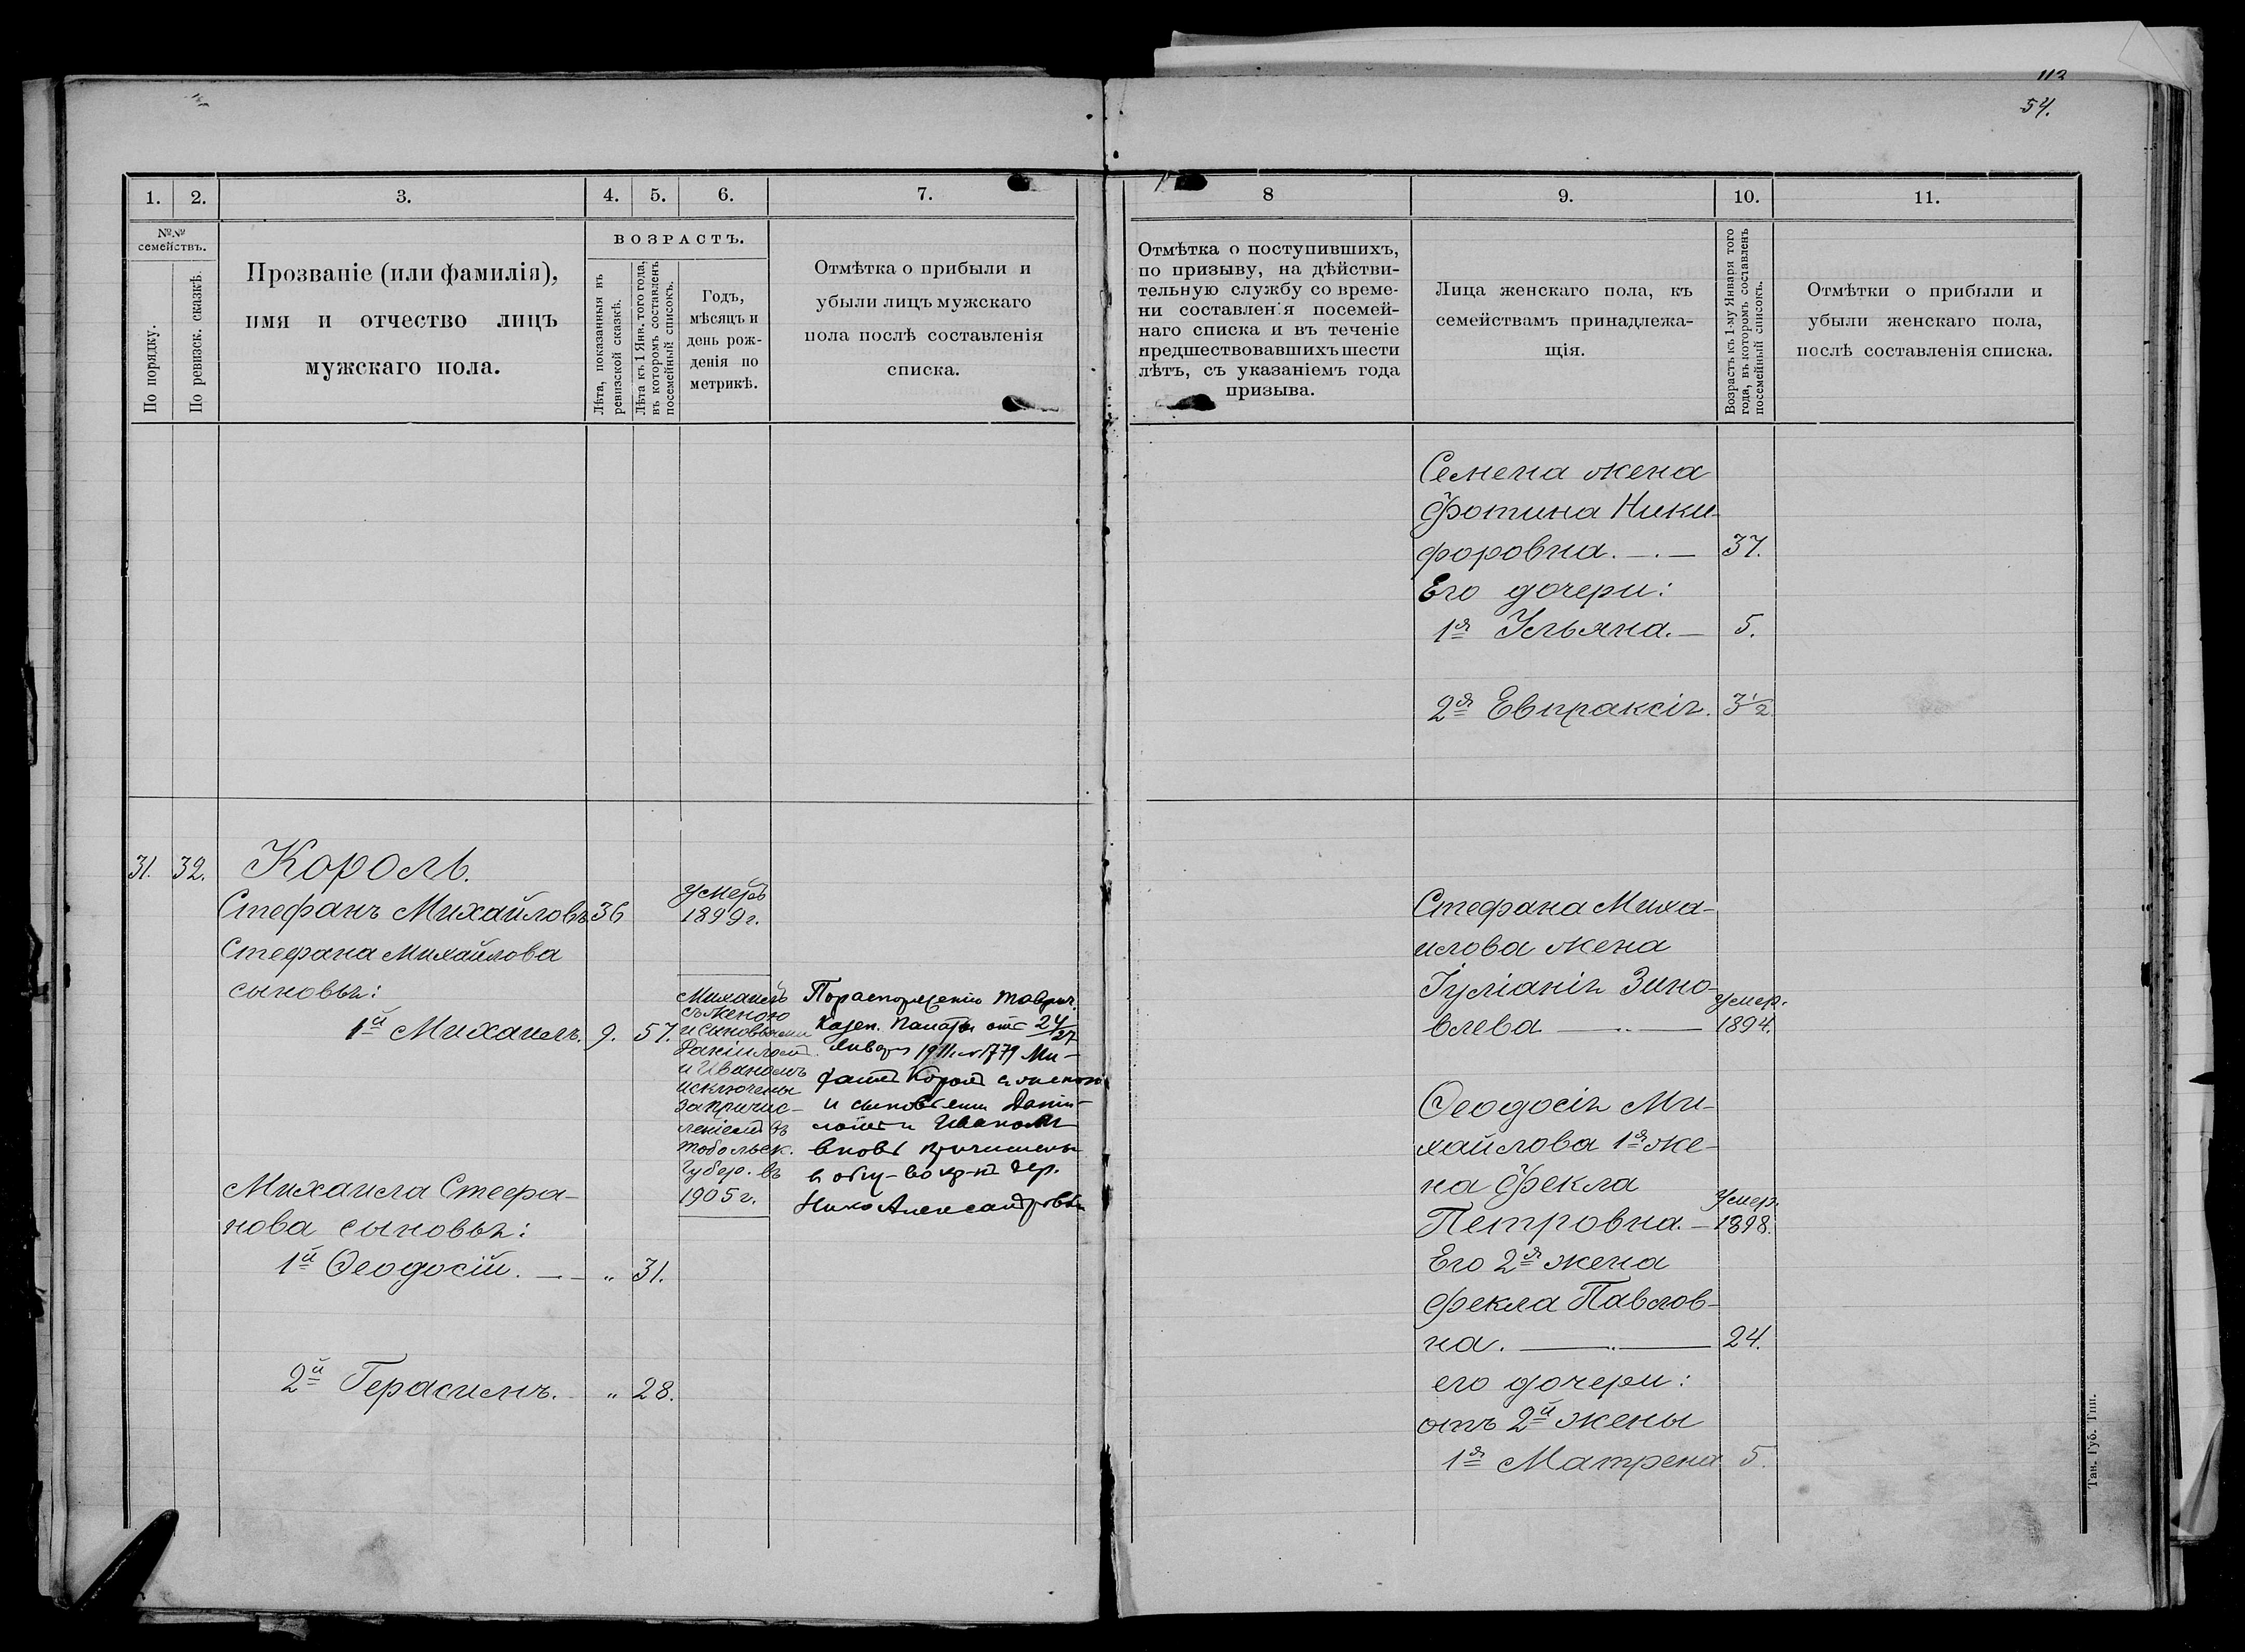 112
54.
1.
2.
3.
4.
5.
6.
7.
№№
семействъ.
По порядку.
По ревизск. сказкѣ.
Прозваніе (или фамилія),
имя и отчество лицъ
мужскаго пола.
ВОЗРАСТЪ.
Лѣта, показанныя въ
ревизской сказкѣ.
Лѣта къ 1 Янв. того года,
въ которомъ составленъ
посемейный списокъ.
Годъ,
мѣсяцъ и
день рож-
денія по
метрикѣ.
Отмѣтка о прибыли и
убыли лицъ мужскаго
пола послѣ составленія
списка.
31. 32. Король.
Стефанъ Михайловъ 36
умеръ
1899 г.
Стефана Михайлова
сыновья:
1й Михаилъ. 9. 57.
Михаилъ
съ женою
и сыновьями
Даніиломъ
и Иваномъ
исключены
за причис-
леніемъ въ
Тобольск.
Губер. въ
1905 г.
По распоряженію Таврич.
Казен. Палаты отъ 24/27
Января 1911 г. №779 Ми-
Король съ женою
и сыновьями Дани-
ломъ и Иваномъ
вновь причислены
въ общ-во кр-нъ дер.
Ново Александровки
Михаила Стефа-
нова сыновья:
1й Ѳеодосій. — „ 31.
2й Герасимъ. „ 28.
8
9.
10.
11.
Отмѣтка о поступившихъ,
по призыву, на дѣйстви-
тельную службу со време-
ни составленія посемей-
наго списка и въ теченіе
предшествовавшихъ шести
лѣтъ, съ указаніемъ года
призыва.
Лица женскаго пола, къ
семействамъ принадлежа-
щія.
Возрастъ къ 1-му Января того
года, въ которомъ составленъ
посемейный списокъ.
Отмѣтки о прибыли и
убыли женскаго пола,
послѣ составленія списка.
Семена жена
Фотина Ники-
форовна. — 37.
Его дочери:
1я Ульяна. — 5.
2я Евпраксія. 3 1/2
Стефана Миха-
илова жена
Іуліанія Зино-
вьева — умер. 1894.
Ѳеодосія Ми-
хайлова 1я же-
на Фекла
Петровна. — умер. 1898.
Его 2я жена
Фекла Павлов-
на. — 24.
его дочери:
отъ 2й жены
1я Матрена 5.
Тав. Губ. Тип.